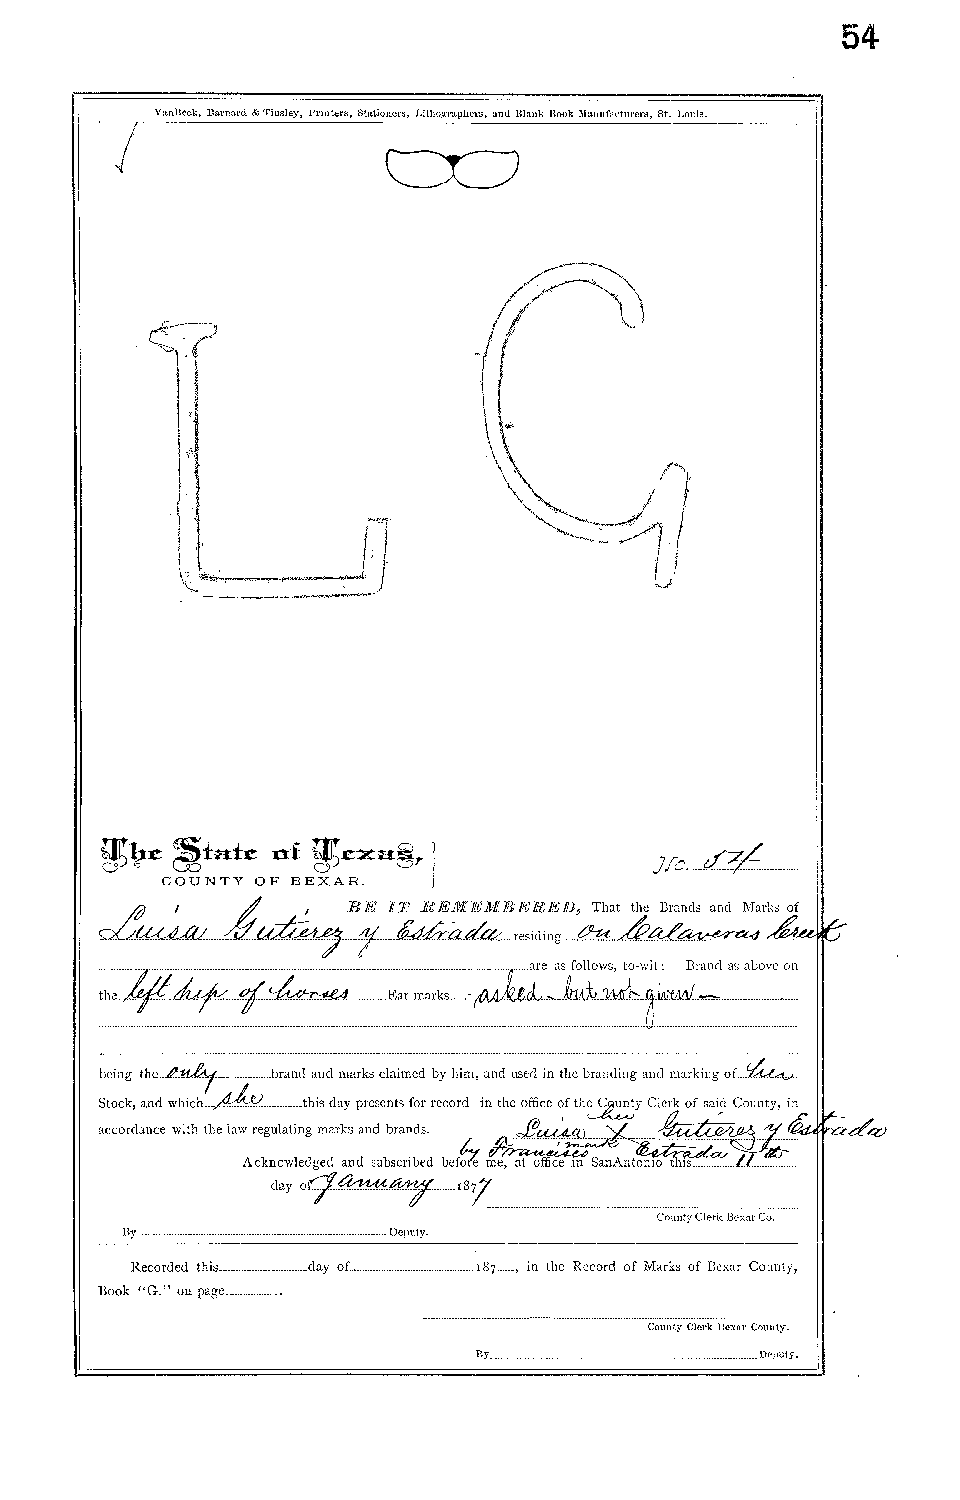 54
VanBeek, Barnard & Tinsley, Printers, Stationers, Lithographers, and Blank Book Manufacturers, St. Louis.
L G
The State of Texas,
No. 54
COUNTY OF BEXAR.
BE IT REMEMBERED, That the Brands and Marks of
Luisa Gutierez y Estrada residing on Calaveras Creek
are as follows, to-wit: Brand as above on
the left hip of horses Ear marks asked - but not given -
being the only brand and marks claimed by him, and used in the branding and marking of her
Stock, and which she this day presents for record in the office of the County Clerk of said County, in
her
accordance with the law regulating marks and brands. Luisa X Gutierez y Estrada
mark
by Francisco Estrada
Acknowledged and subscribed before me, at office in San Antonio this 11th
day of January 1877
County Clerk Bexar Co.
By Deputy.
Recorded this day of 187 , in the Record of Marks of Bexar County,
Book "G." on page .
County Clerk Bexar County.
By Deputy.